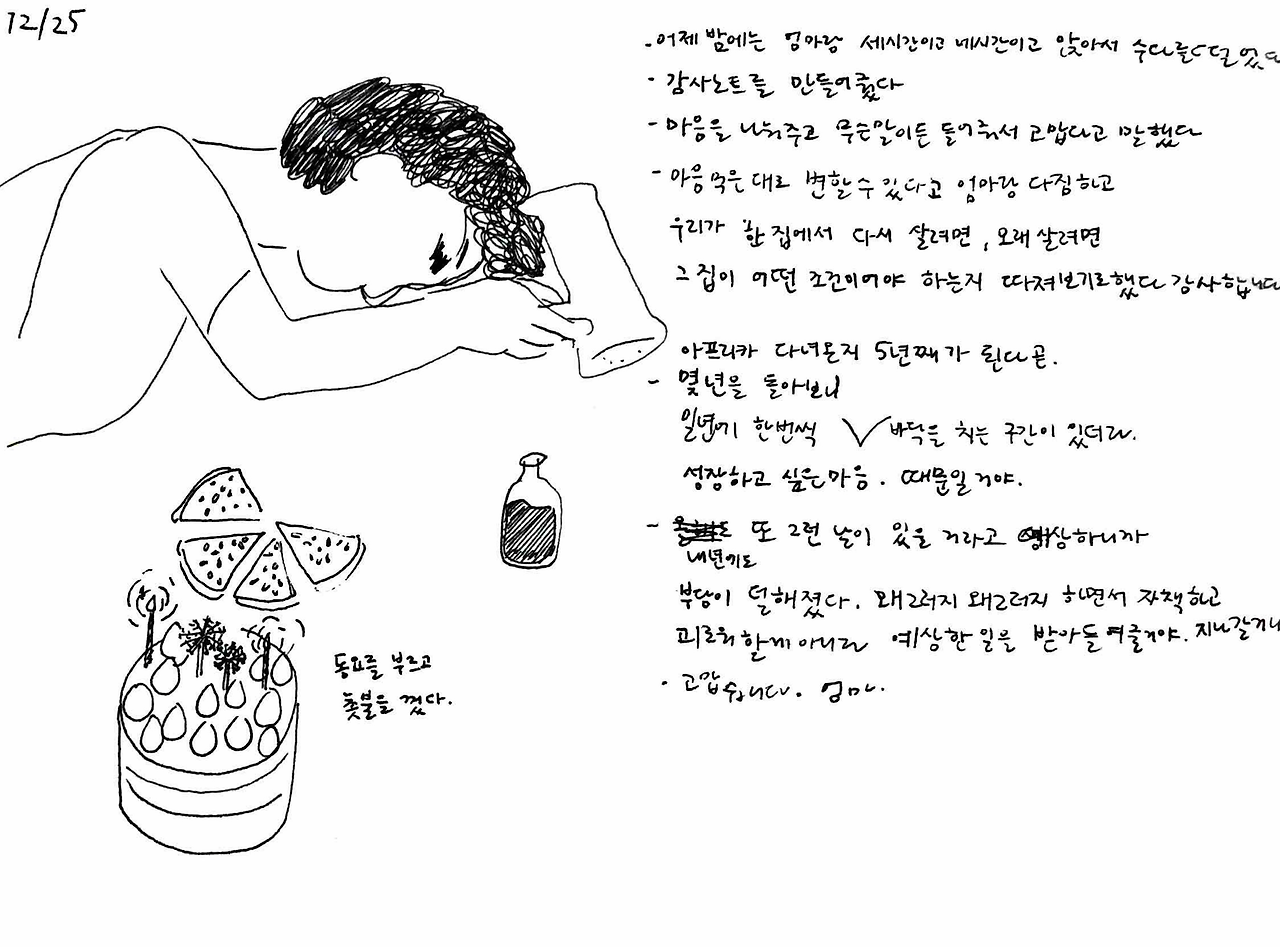 12/25
- 어제 밤에는 엄마랑 세시간이고 네시간이고 앉아서 수다를 떨었다
- 감사노트를 만들어줬다
- 마음을 나눠주고 무슨말이든 들어줘서 고맙다고 말했다
- 마음먹은 대로 변할 수 있다고 엄마랑 다짐하고
우리가 한 집에서 다시 살려면, 오래 살려면
그 집이 어떤 조건이어야 하는지 따져보기로했다 감사합니다
아프리카 다녀온지 5년째가 된다 곧.
- 몇년을 돌아보니
일년에 한번씩 바닥을 치는 구간이 있더라.
성장하고 싶은 마음. 때문일거야.
- 또 그런 날이 있을 거라고 예상하니까
내년에도
부담이 덜해졌다. 왜그러지 왜그러지 하면서 자책하고
괴로워 할게 아니라 예상한 일을 받아들여줄거야. 지나갈거니
- 고맙습니다. 엄마.
동요를 부르고
촛불을 껐다.